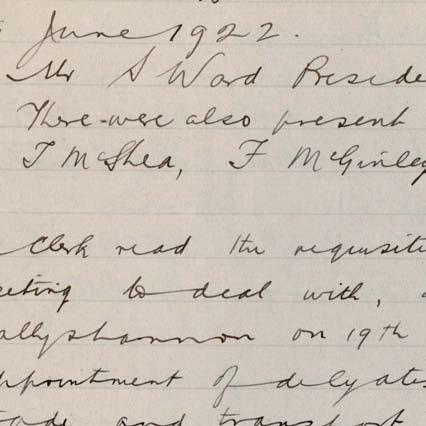 June 1922.
Mr S Ward Preside
There were also present
T McShea, F McGinley
Clerk read the requisiti
eeting to deal with,
allyshannon on 19th
ppointment of delegates
rade and transport